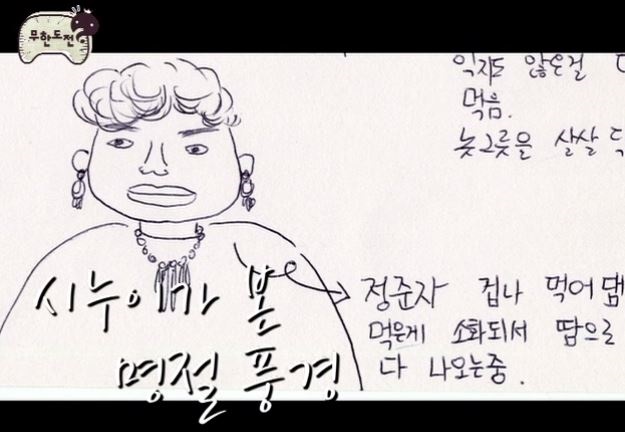 무한도전
익지도 않은걸
먹음.
놋그릇을 살살
시누이가 본
명절 풍경
정준자 겁나 먹어댐
먹은게 소화되서 땀으로
다 나오는중.